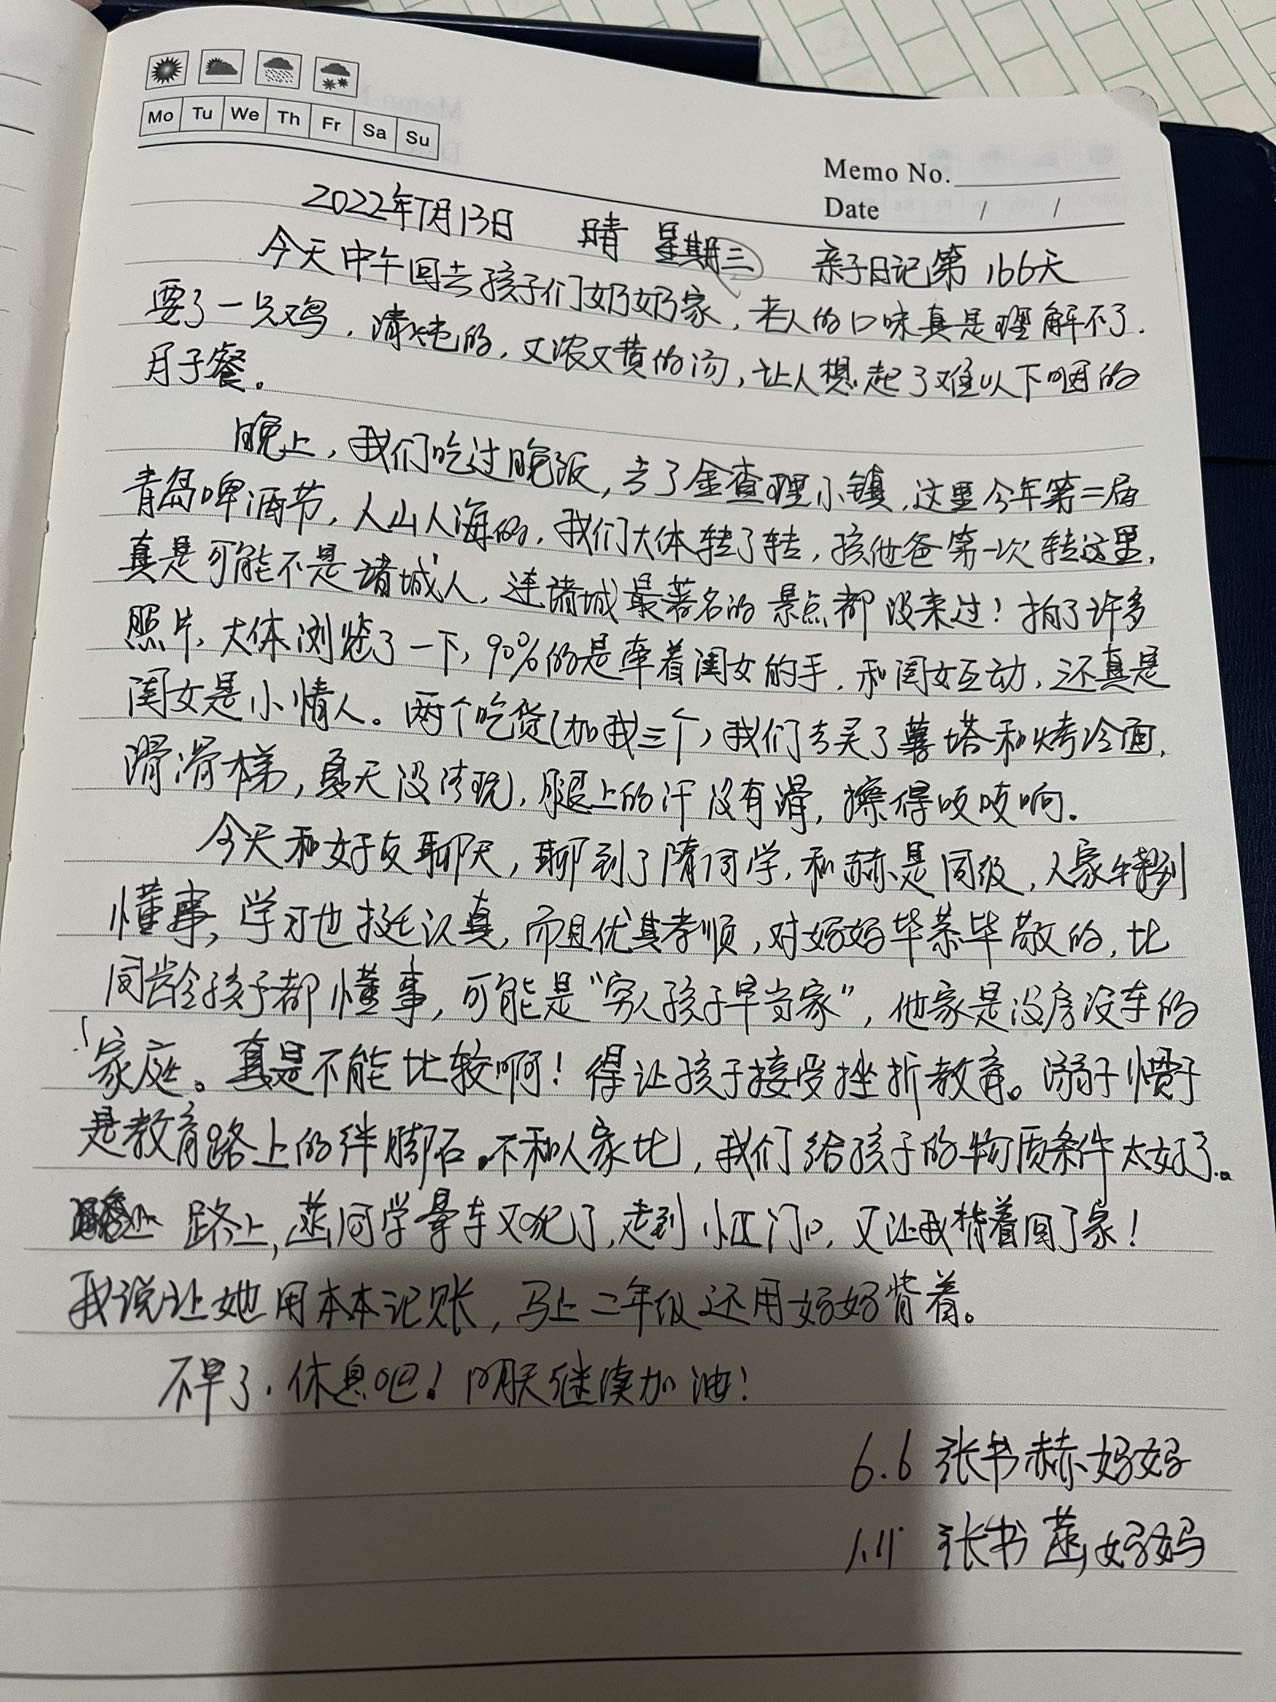 Mo Tu We Th Fr Sa Su
Memo No.
Date / /
2022年7月13日 晴 星期三 亲子日记第166天
今天中午回去孩子们奶奶家，老人的口味真是理解不了.
要了一只鸡，清炖的，又浓又黄的汤，让人想起了难以下咽的
月子餐。
晚上，我们吃过晚饭，去了金查理小镇，这里今年第二届
青岛啤酒节，人山人海的，我们大体转了转，孩他爸第一次转这里，
真是可能不是诸城人，连诸城最著名的景点都没来过！拍了许多
照片，大体浏览了一下，90%的是牵着闺女的手，和闺女互动，还真是
闺女是小情人。两个吃货(加我三个)我们去买了薯塔和烤冷面，
滑滑梯，夏天没法玩，腿上的汗没有滑，擦得吱吱响。
今天和好友聊天，聊到了隋同学，和赫是同级，人家特别
懂事，学习也挺认真，而且优其孝顺，对妈妈毕恭毕敬的，比
同龄孩子都懂事，可能是“穷人孩子早当家”，他家是没房没车的
家庭。真是不能比较啊！得让孩子接受挫折教育。溺子惯子
是教育路上的绊脚石。不和人家比，我们给孩子的物质条件太好了。
路上，同学晕车又犯了，走到小区门口，又让我背着回了家！
我说让她用本本记账，马上二年级还用妈妈背着。
不早了，休息吧！明天继续加油！
6.6 张书赫妈妈
1.11 张书妈妈